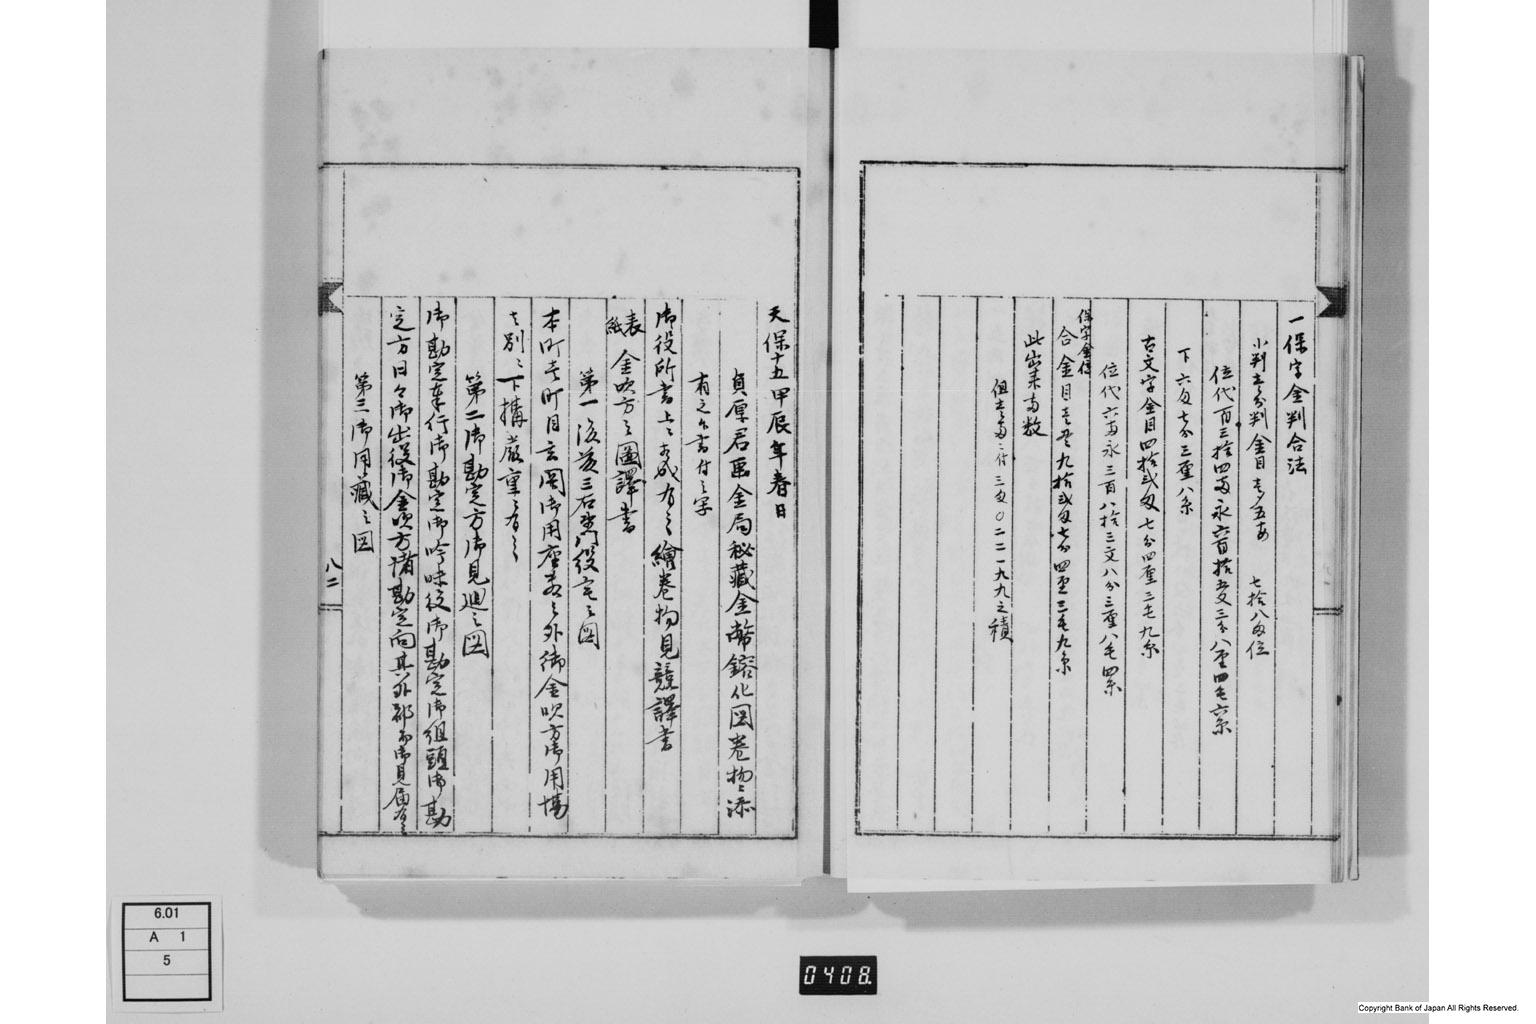 一保字金判合法
小判壱分判金目壱〆五百 七拾八匁位
位代百三拾四両永六百拾五文三分八厘四毛六糸
下 六匁七分三厘八糸
古文字金目四拾弐匁七分四厘二毛九糸
位代六両永三百八拾三文八分三厘八毛四糸
保字金位
合金目壱貫九拾弐匁七分四厘三毛九糸
此出来両数
但壱両ニ付三匁〇二二一九九之積
天保十五甲辰年春日
貞厚君画金局秘蔵金幣鎔化図巻物ニ添
有之候書付之写
御役所書上ニ相成有之繪巻物見競譯書
表紙 金吹方之圖譯書
第一 後藤三右衛門役宅之図
本町壱町目玄関御用座敷之外御金吹方御用場
者別ニ下構厳重ニ有之
第二御勘定方御見廻之図
御勘定奉行御勘定御吟味役御勘定御組頭御勘
定方日々御出役御金吹方諸勘定向其外都而御見届有之
第三御用蔵之図
八二
6.01
A 1
5
0408.
Copyright Bank of Japan All Rights Reserved.